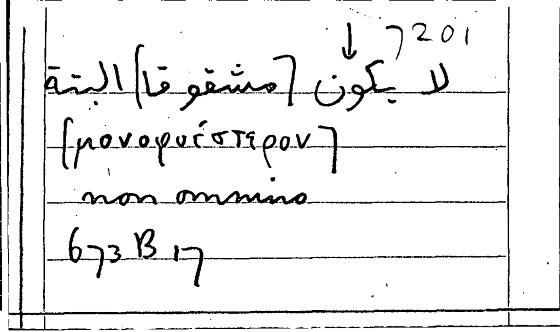 ↓ 7201
لا يكون [مشقوقا] البتة
[μονοφυέστερον]
non omnino
673 B 17